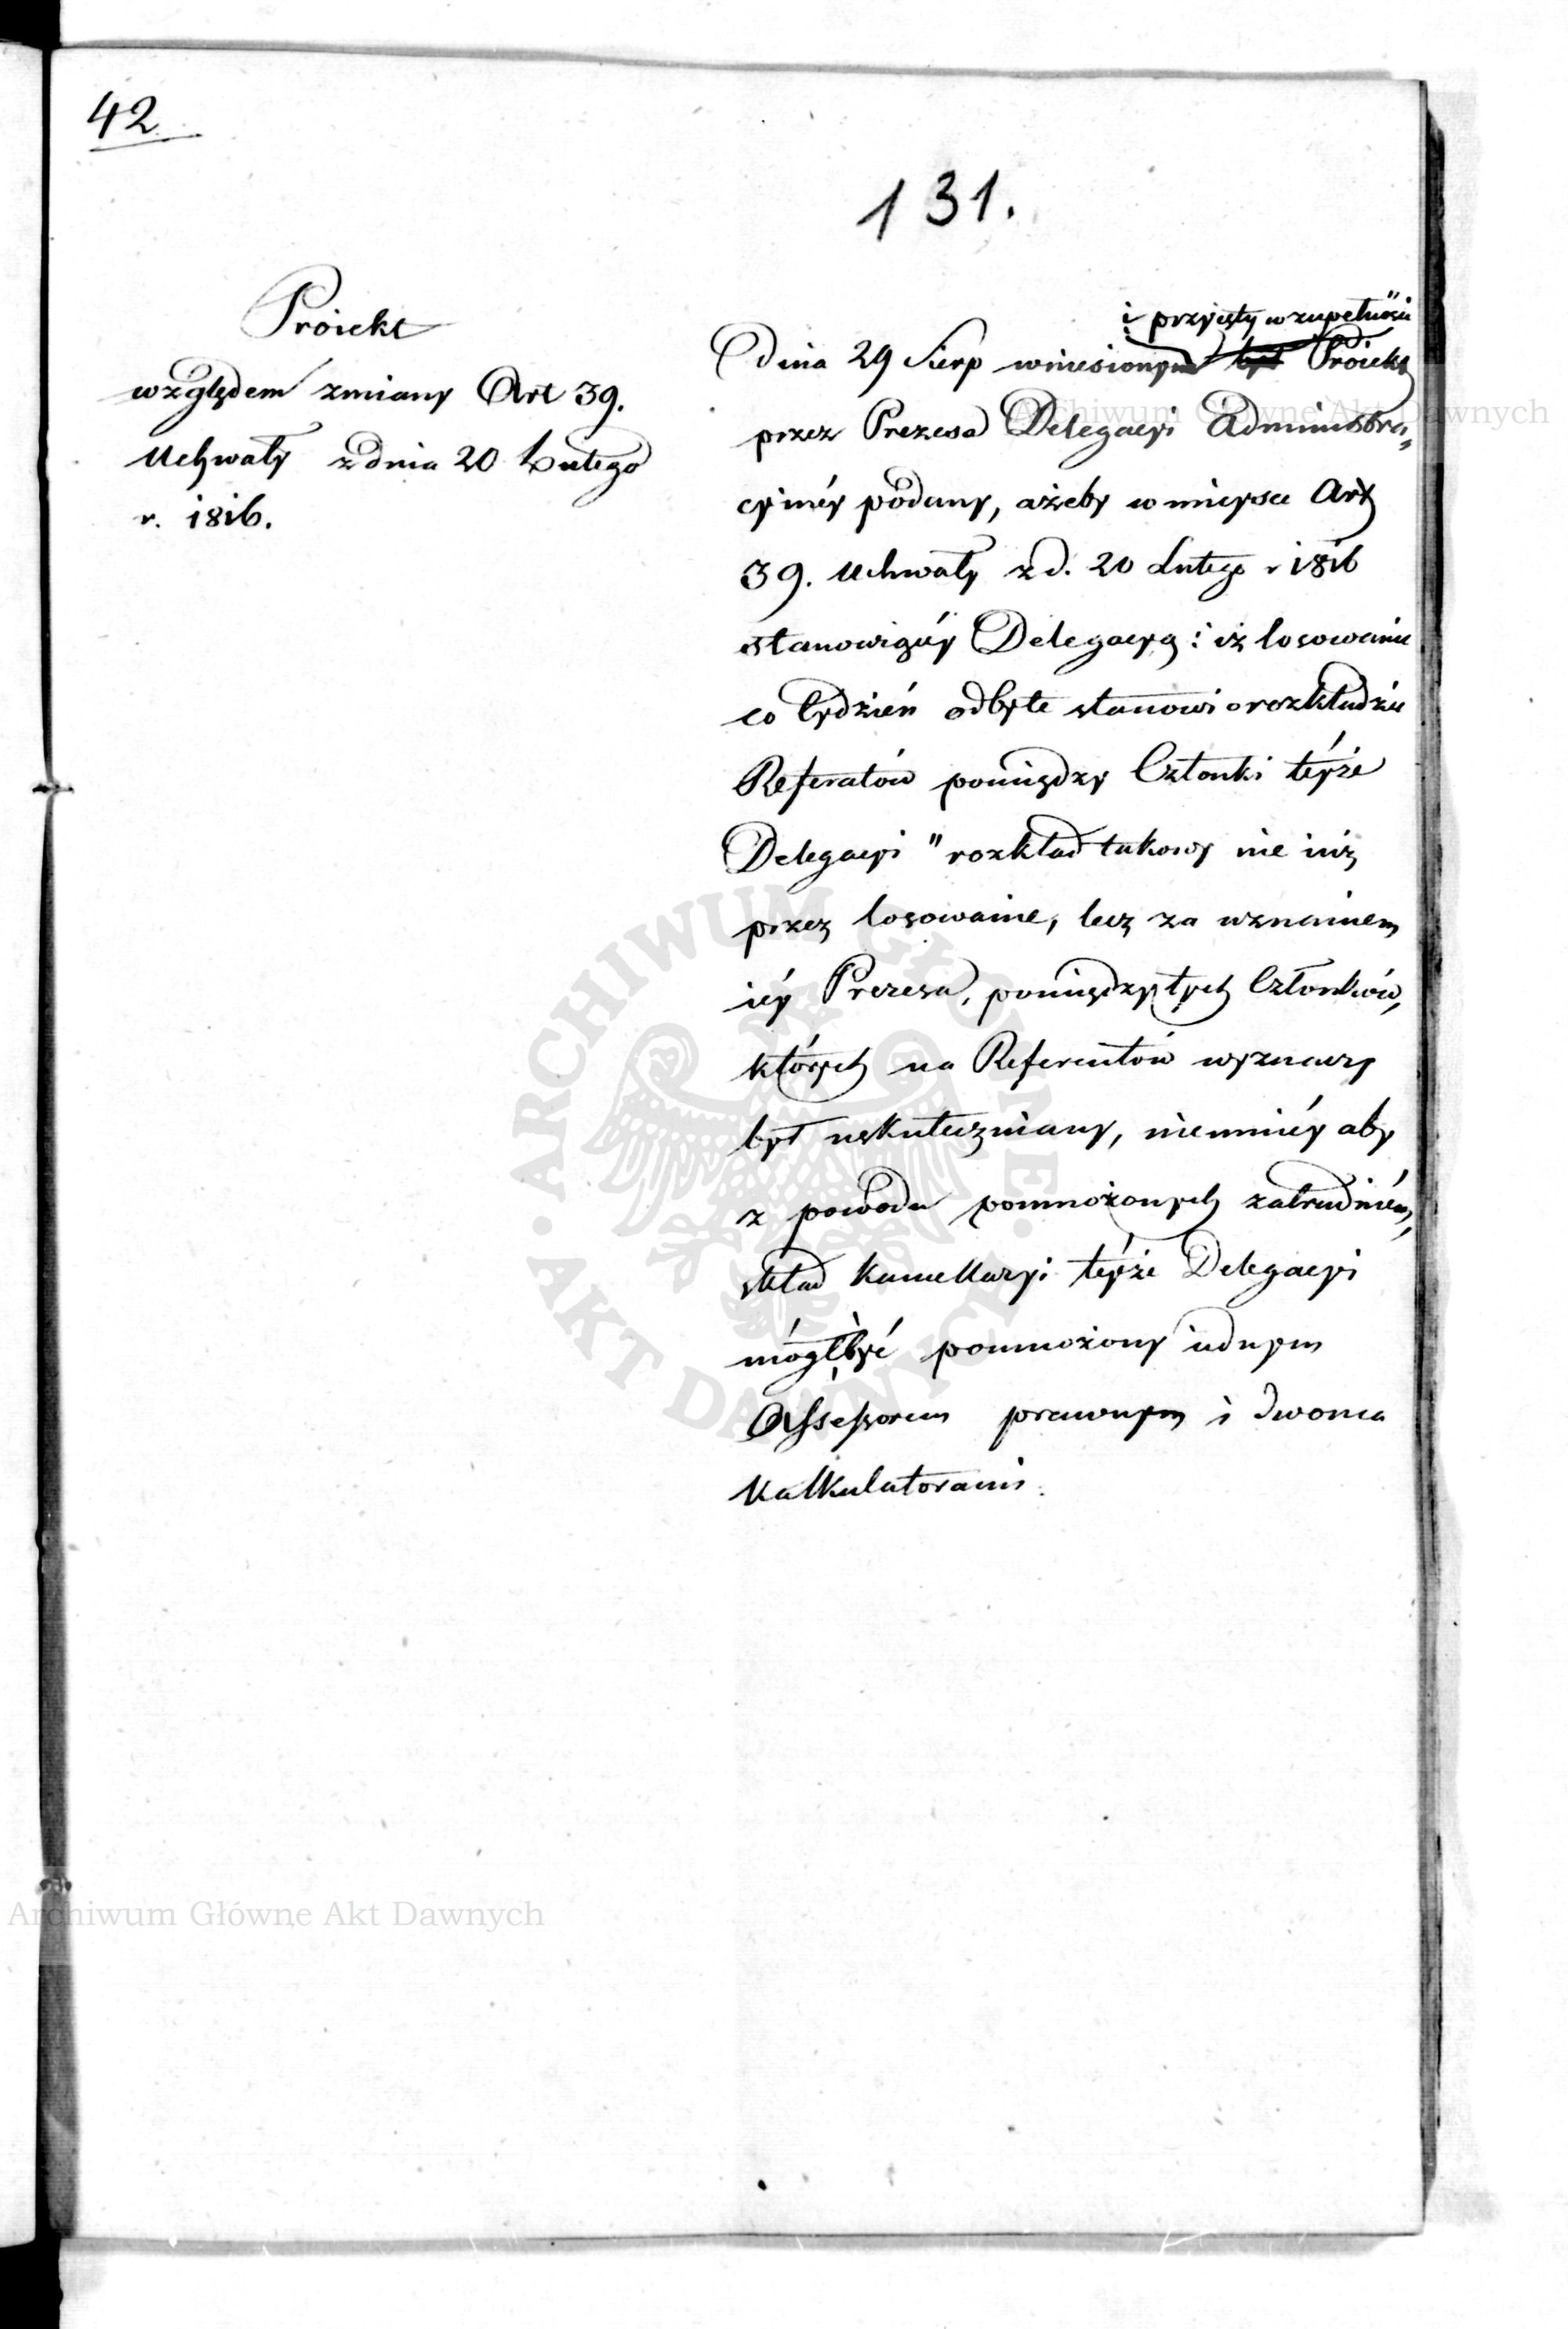 42
131.
Proiekt
względem zmiany Art 39.
Uchwały z dnia 20 Lutego
r. 1816.
i przyjęty w zupełności
Dnia 29 Sierp wniesionym był Proiekt
przez Prezesa Delegacyi Administra-
cyiney podany, ażeby w mieysce Art
39. Uchwały z d. 20 Lutego r 1816
stanowiącéy Delegacyą: iż losowanie
co tydzień odbyte stanowi o rozkładzie
Referatów pomiędzy Członki teyże
Delegacyi "rozkład takowy nie iuż
przez losowanie, lecz za uznaniem
iéy Prezesa, pomiędzy tych Członków,
których na Referentów wyznaczy
był uskuteczniany, niemniéy aby
z powodu pomnożonych zatrudnień,
skład Kancellaryi téyże Delegacyi
mógł być pomnożony iednym
Assessorem prawnym i dwoma
Kalkulatorami.
Archiwum Główne Akt Dawnych
Archiwum Główne Akt Dawnych
ARCHIWUM GŁÓWNE AKT DAWNYCH